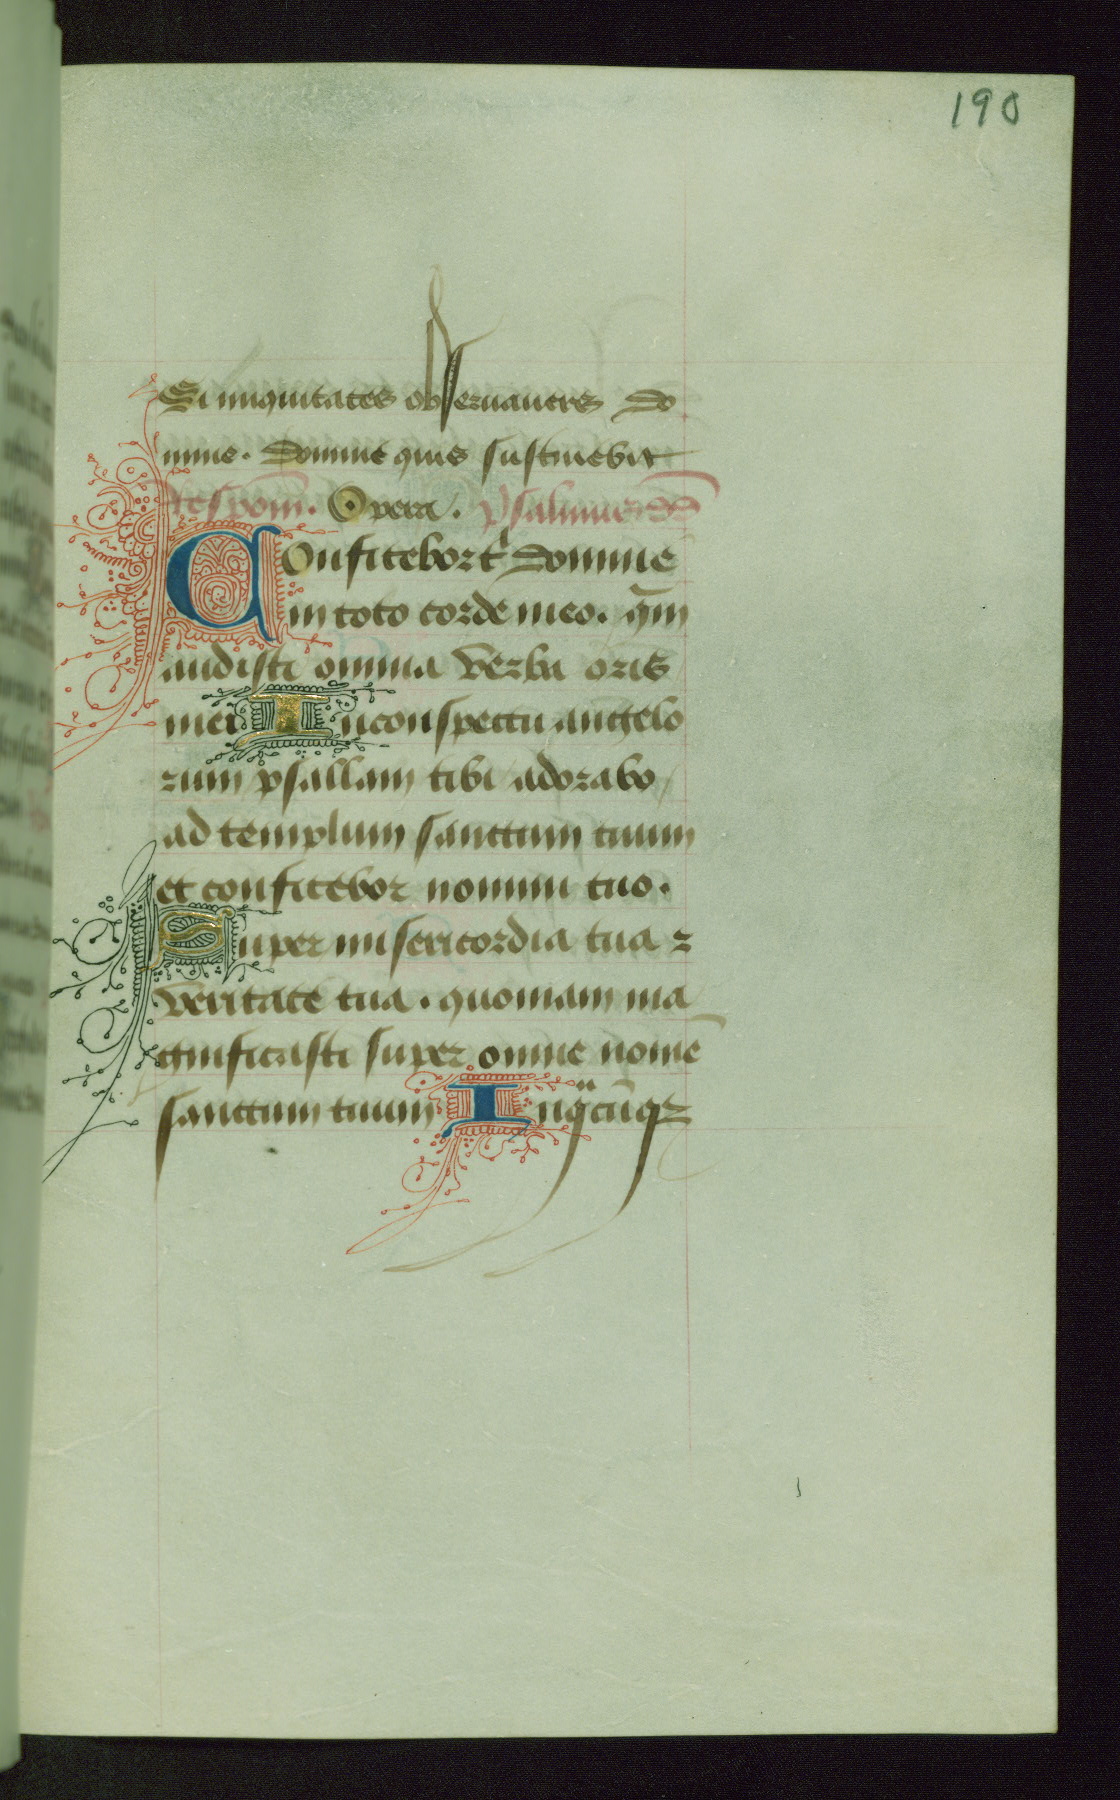 190
Si iniquitates observaveris do
mine. Domine quis sustinebit
Respom̄. Opera. Psalmus dd̄
Confitebor t' Domine
in toto corde meo. qm̄
audisti omnia verba oris
mei In conspectu angelo
rum psallam tibi adorabo
ad templum sanctum tuum
et confitebor nomini tuo.
Super misericordia tua ⁊
veritate tua. quoniam ma
gnificasti super omne nomē
sanctum tuum In qͣcūqꝫ